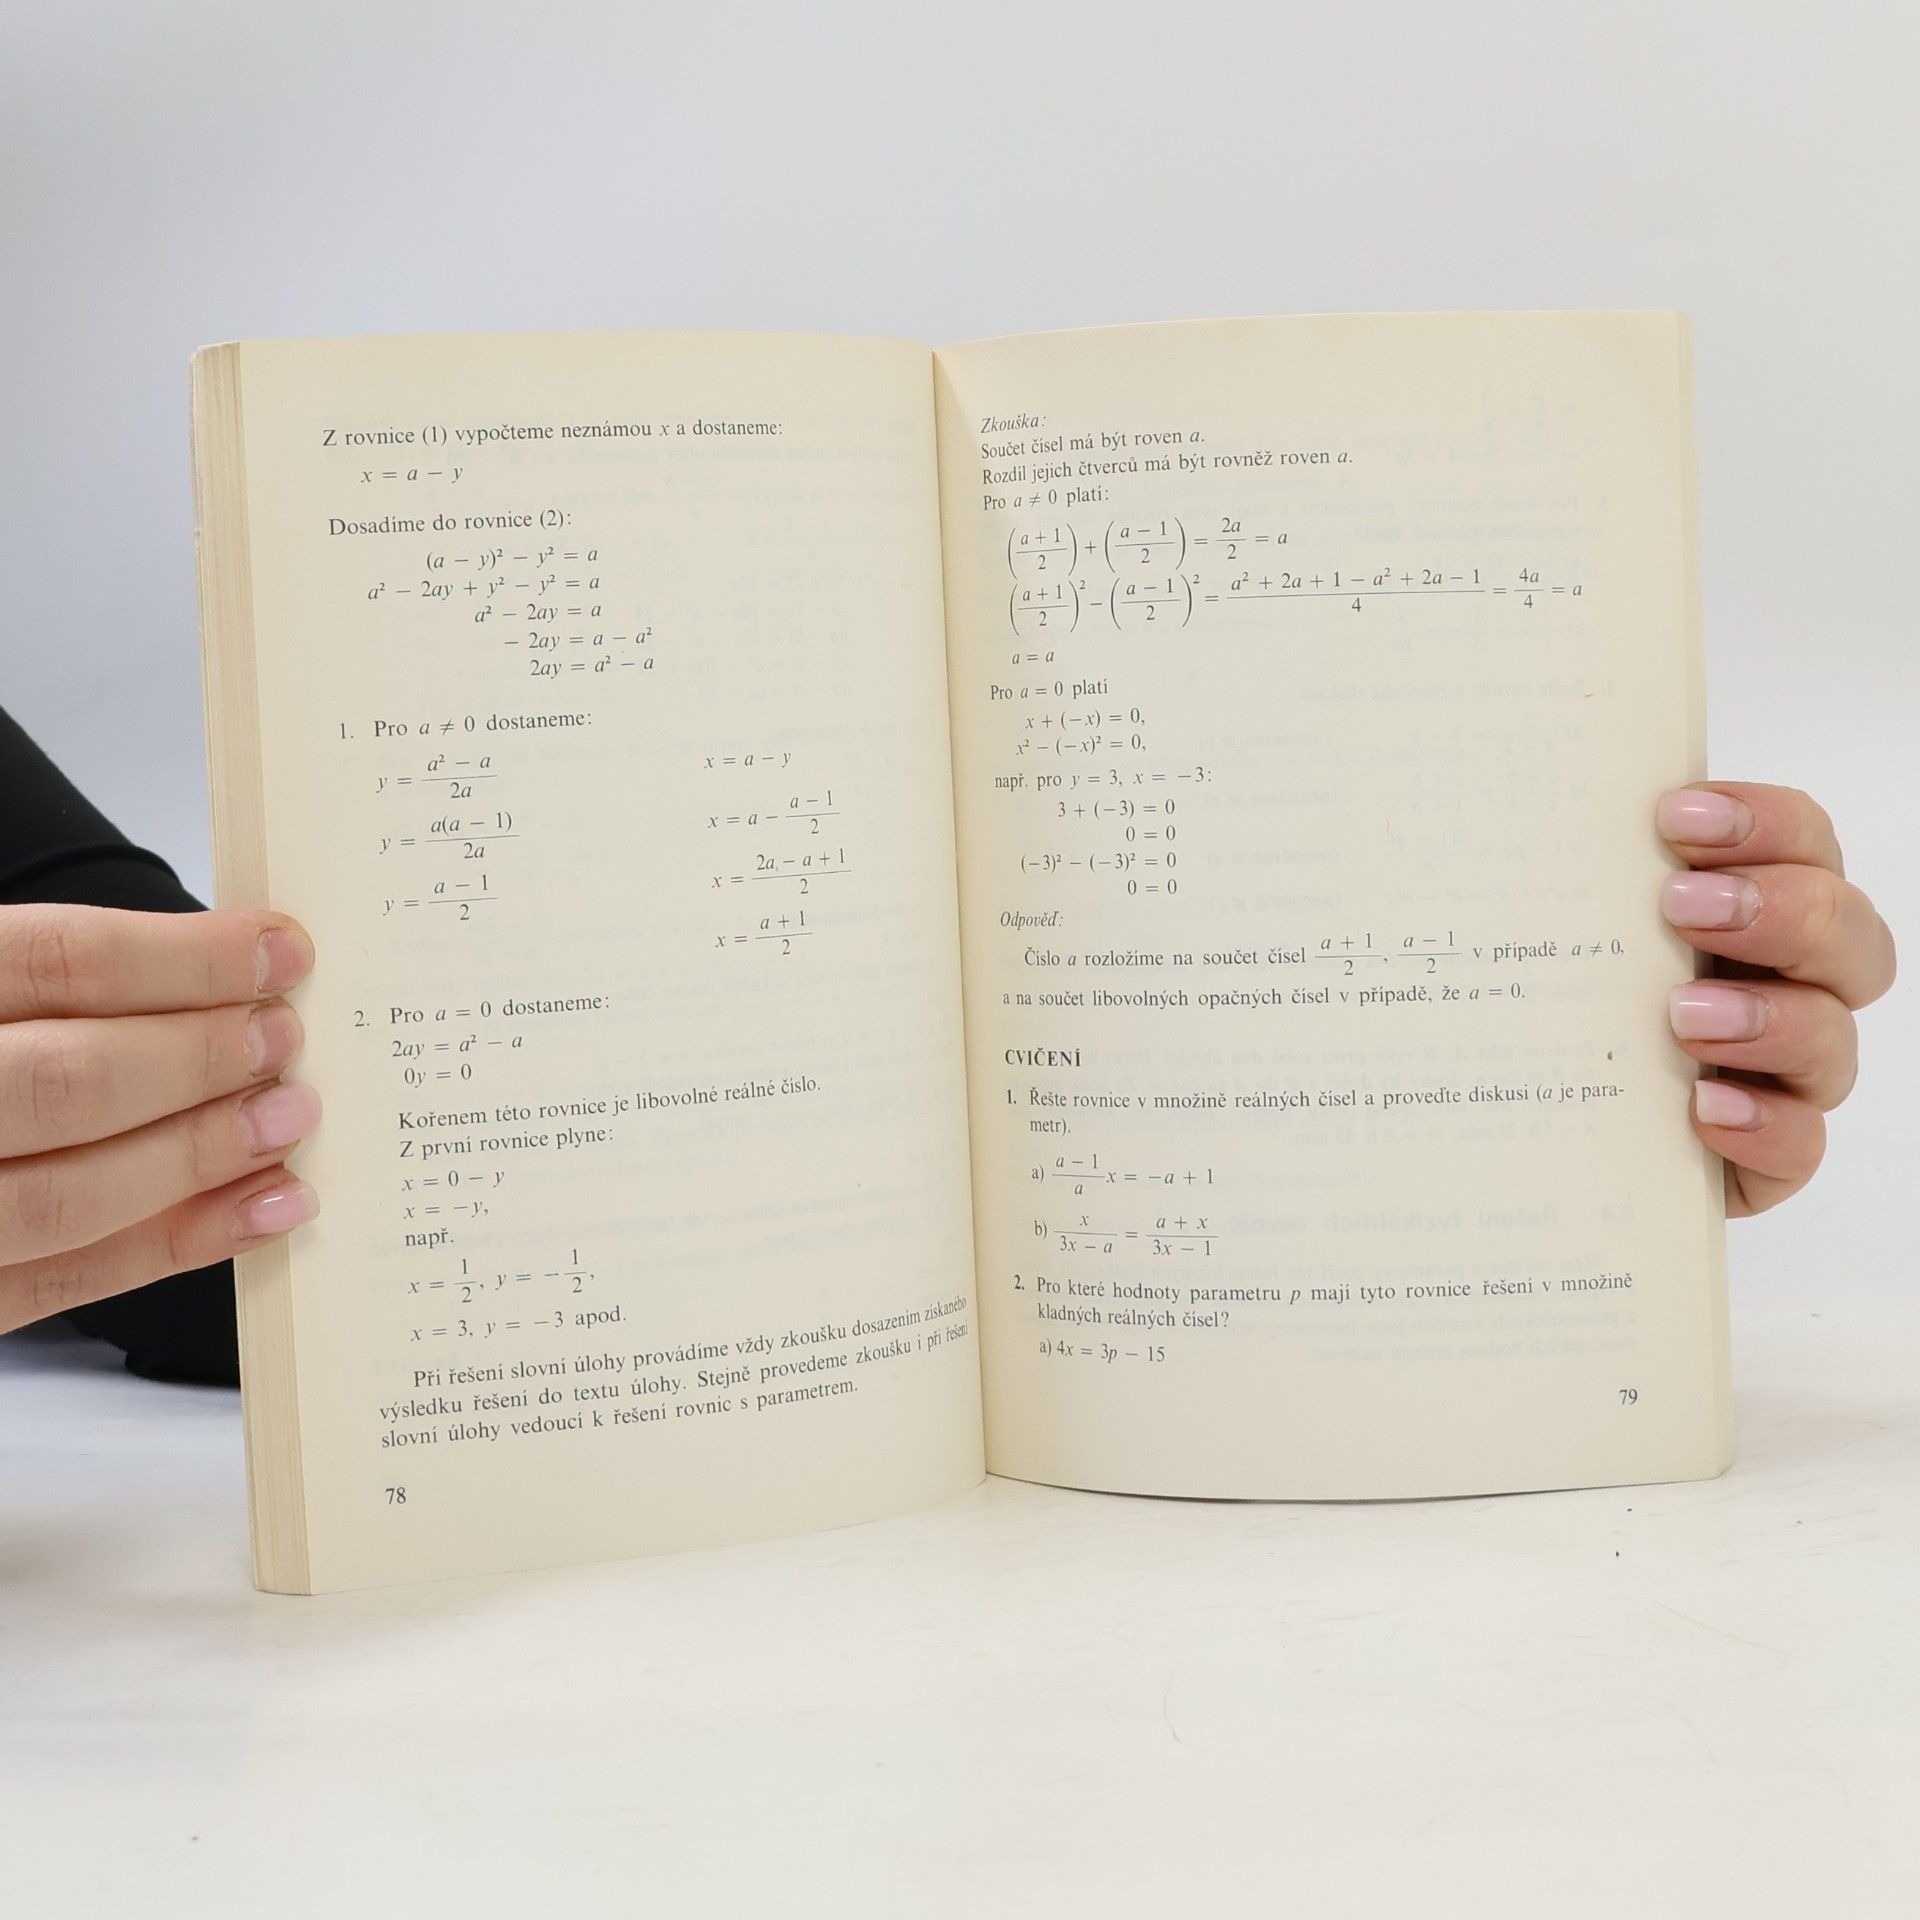 Z rovnice (1) vypočteme neznámou x a dostaneme:
x = a − y
Dosadíme do rovnice (2):
(a − y)² − y² = a
a² − 2ay + y² − y² = a
a² − 2ay = a
− 2ay = a − a²
2ay = a² − a
1. Pro a ≠ 0 dostaneme:
y = (a² − a)/2a
x = a − y
y = a(a − 1)/2a
x = a − (a − 1)/2
y = (a − 1)/2
x = (2a − a + 1)/2
x = (a + 1)/2
2. Pro a = 0 dostaneme:
2ay = a² − a
0y = 0
Kořenem této rovnice je libovolné reálné číslo.
Z první rovnice plyne:
x = 0 − y
x = −y,
např.
x = 1/2, y = −1/2,
x = 3, y = −3 apod.
Při řešení slovní úlohy provádíme vždy zkoušku dosazením získaného
výsledku řešení do textu úlohy. Stejně provedeme zkoušku i při řešení
slovní úlohy vedoucí k řešení rovnic s parametrem.
78
Zkouška:
Součet čísel má být roven a.
Rozdíl jejich čtverců má být rovněž roven a.
Pro a ≠ 0 platí:
((a + 1)/2) + ((a − 1)/2) = 2a/2 = a
((a + 1)/2)² − ((a − 1)/2)² = (a² + 2a + 1 − a² + 2a − 1)/4 = 4a/4 = a
a = a
Pro a = 0 platí
x + (−x) = 0,
x² − (−x)² = 0,
např. pro y = 3, x = −3:
3 + (−3) = 0
0 = 0
(−3)² − (−3)² = 0
0 = 0
Odpověď:
Číslo a rozložíme na součet čísel (a + 1)/2, (a − 1)/2 v případě a ≠ 0,
a na součet libovolných opačných čísel v případě, že a = 0.
CVIČENÍ
1. Řešte rovnice v množině reálných čísel a proveďte diskusi (a je para-
metr).
a) (a − 1)/a x = −a + 1
b) x/(3x − a) = (a + x)/(3x − 1)
2. Pro které hodnoty parametru p mají tyto rovnice řešení v množině
kladných reálných čísel?
a) 4x = 3p − 15
79